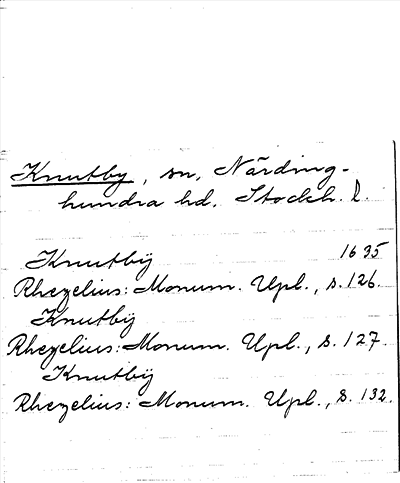 Knutby, sn, Närding-
hundra hd. Stockh. l.
Knutbÿ 1635
Rhezelius: Monum. Upl., s. 126.
Knutbÿ
Rhezelius: Monum. Upl., s. 127.
Knutbÿ
Rhezelius: Monum. Upl., s. 132.